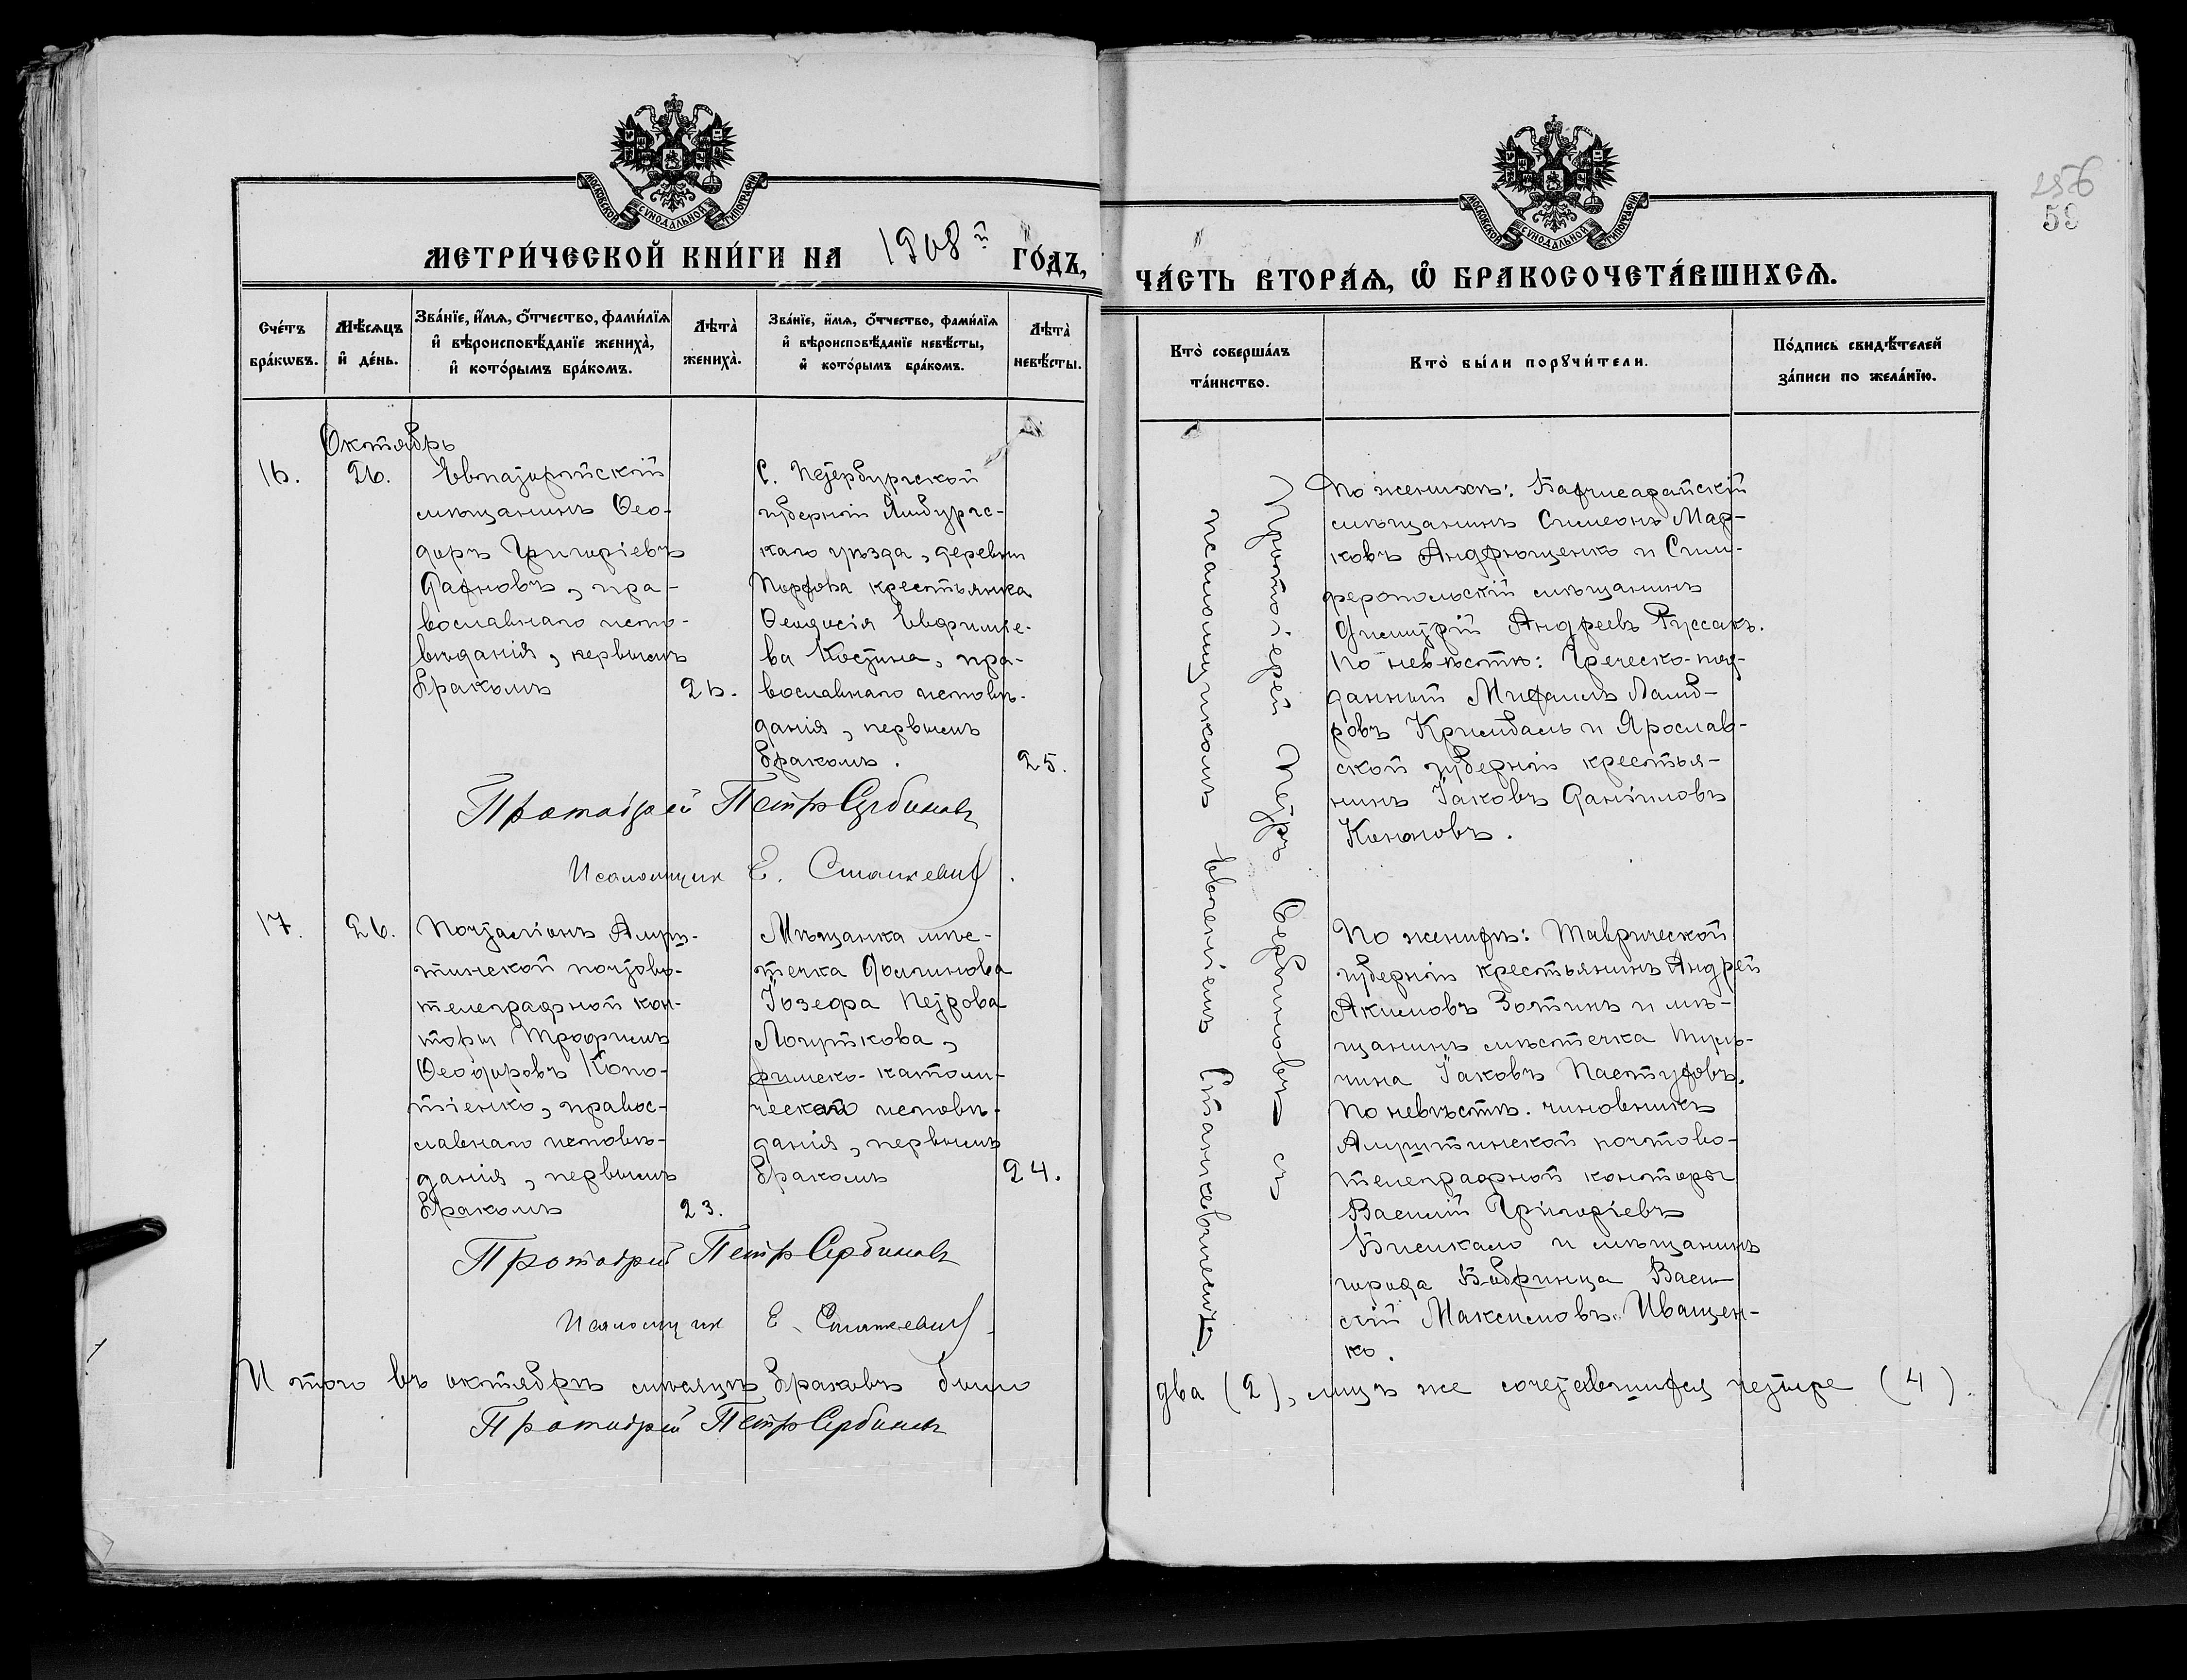 МОСКОВСКОЙ СѴНОДАЛЬНОЙ ТИПОГРАФІИ
МЕТРИ́ЧЕСКОЙ КНИ́ГИ НА 1908й ГО́ДЪ,
Сче́тъ бра́кѡвъ.
Мѣ́сяцъ и҆ де́нь.
Зва́нїе, и҆́мя, ѻ҆́тчество, фами́лїя
и҆ вѣроисповѣ́данїе жениха̀,
и҆ кото́рымъ бра́комъ.
Лѣта̀ жениха̀.
Зва́нїе, и҆́мя, ѻ҆́тчество, фами́лїя
и҆ вѣроисповѣ́данїе невѣ́сты,
и҆ кото́рымъ бра́комъ.
Лѣта̀ невѣ́сты.
Октябрь
16.
26.
Евпаторійскій
мѣщанинъ Ѳео-
доръ Григоріевъ
Дахновъ, пра-
вославнаго испо-
вѣданія, первымъ
бракомъ
26.
С. Петербургской
губерніи Ямбургс-
каго уѣзда, деревни
крестьянка
Ѳеодосія Евфиміе-
ва Костина, пра-
вославнаго исповѣ-
данія, первымъ
бракомъ.
25.
Протоіерей Петръ Сербиновъ
Псаломщик Е. Станкевич.
17.
26.
Почталіонъ Алуш-
тинской почтово-
телеграфной кон-
торы Трофимъ
Ѳеодоровъ Коно-
тіенко, правос-
лавнаго исповѣ-
данія, первымъ
бракомъ
23.
Мѣщанка мѣс-
течка Долинова
Іозефа Петрова
римско-католи-
ческаго исповѣ-
данія, первымъ
бракомъ
24.
Протоіерей Петръ Сербиновъ
Псаломщик Е. Станкевич
Итого въ октябрѣ мѣсяцѣ браковъ было
Протоіерей Петръ Сербиновъ
МОСКОВСКОЙ СѴНОДАЛЬНОЙ ТИПОГРАФІИ
256
59
ЧА́СТЬ ВТОРА́Ѧ, Ѽ БРАКОСОЧЕТА́ВШИХСѦ.
Кто̀ соверша́лъ
та́инство.
Кто̀ бы́ли порꙋчи́тели.
По́дпись свидѣ́телей
за́писи по жела́нїю.
Протоіерей Петръ Сербиновъ съ
псаломщикомъ Евгеніемъ Станкевичемъ.
По женихѣ: Бахчисарайскій
мѣщанинъ Симеонъ Мар-
ковъ Андрющенко и Сим-
феропольскій мѣщанинъ
Димитрій Андреевъ Руссакъ.
По невѣстѣ: Греческо-под-
данный Михаилъ Ламб-
ровъ Кримбасъ и Ярослав-
ской губерніи крестья-
нинъ Іаковъ Даніиловъ
Кононовъ.
По женихѣ: Таврической
губерніи крестьянинъ Андрей
Акимовъ Зотинъ и мѣ-
щанинъ мѣстечка Туль-
чина Іаковъ Пастуховъ.
По невѣстѣ: чиновникъ
Алуштинской почтово-
телеграфной конторы
Василій Григоріевъ
Бисикало и мѣщанинъ
города Бобринца Васи-
лій Максимовъ Иващен-
ко.
два (2), лицъ же сочетавшихся четыре (4).